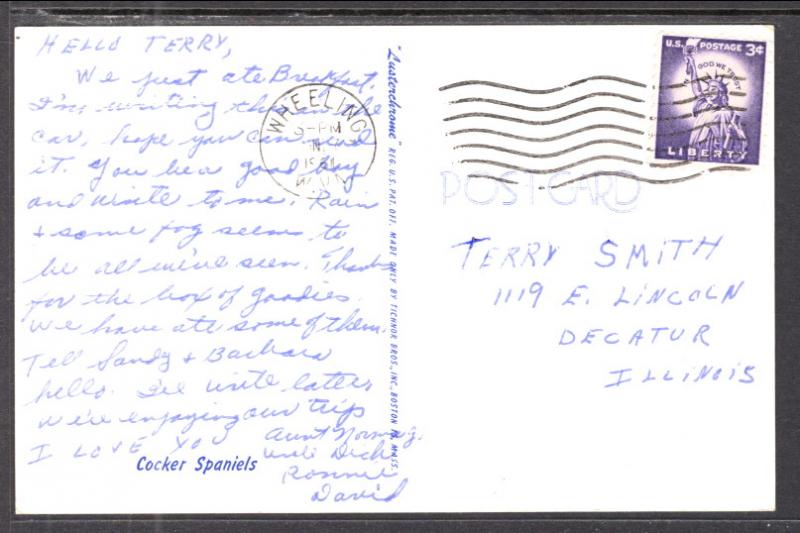 HELLO TERRY,
We just ate Breakfast.
I'm writing this in the
car, hope you can read
it. You be a good boy
and write to me. Rain
+ some fog seems to
be all we've seen. Thanks
for the box of goodies.
We have ate some of them.
Tell Sandy + Barbara
hello. I'll write later,
we're enjoying our trip
I LOVE YOU
Aunt
Uncle Dick
Ronnie
David
Cocker Spaniels
"Lusterchrome" REG. U.S. PAT. OFF. MADE ONLY BY TICHNOR BROS., INC., BOSTON MASS.
WHEELING
PM
U.S. POSTAGE 3¢
IN GOD WE TRUST
LIBERTY
POST CARD
TERRY SMITH
1119 E. LINCOLN
DECATUR
ILLINOIS